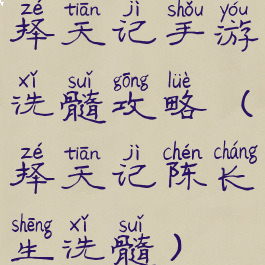 zé tiān jì shǒu yóu
择天记手游
xǐ suǐ gōng lüè
洗髓攻略（
zé tiān jì chén cháng
择天记陈长
shēng xǐ suǐ
生洗髓）